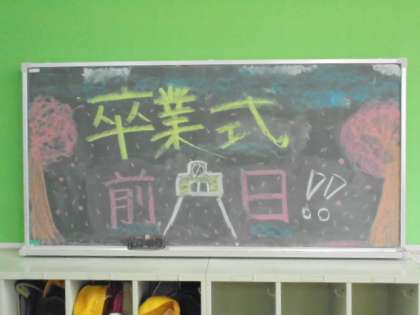 卒業式
前日!!